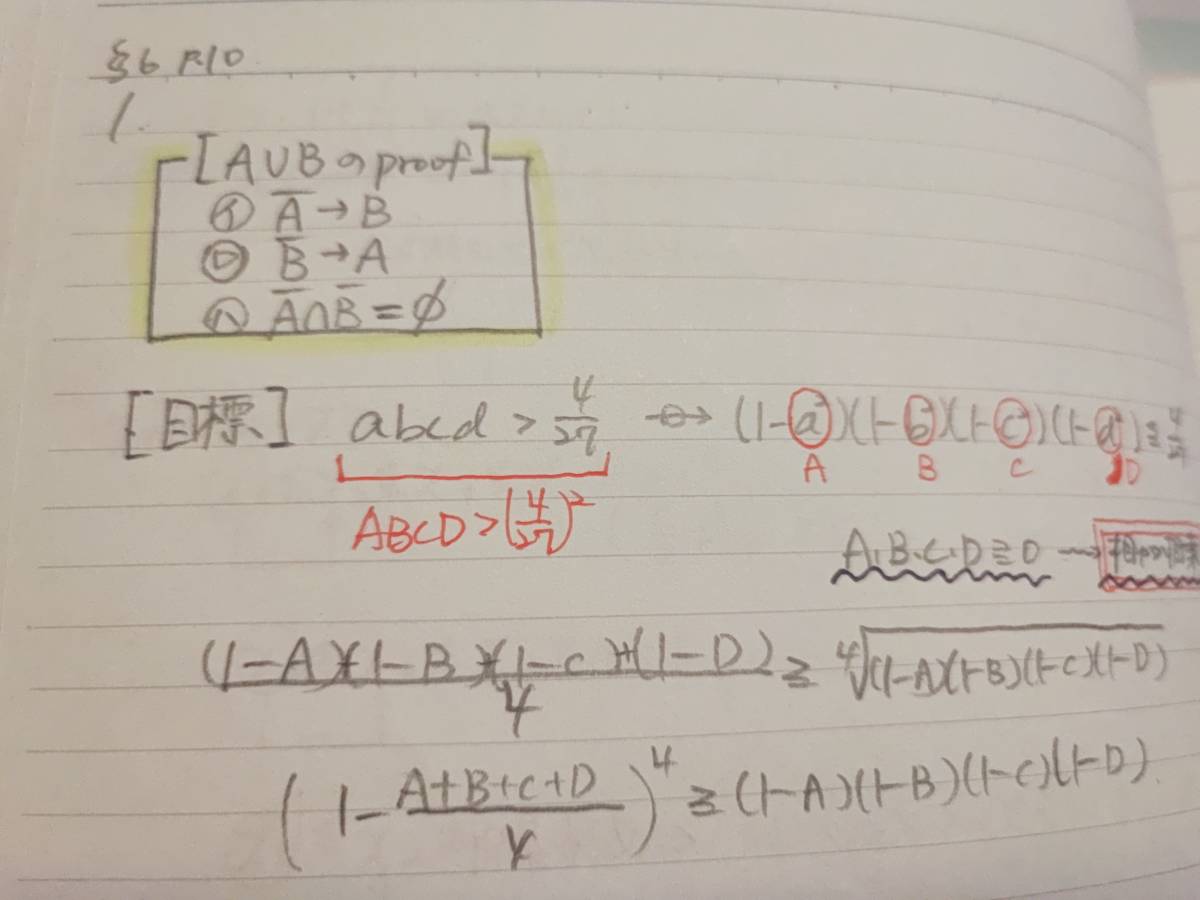 §6 P.10
1.
[A∪Bのproof]
㋑ A̅→B
㋺ B̅→A
㋩ A̅∩B̅=∅
[目標] abcd > 4/27 (1-a²)(1-b²)(1-c²)(1-d²) ≦ 4/27
A B C D
ABCD > (4/27)²
A,B,C,D≧0 → 相加相乗
(1-A)+(1-B)+(1-C)+(1-D)/4 ≧ ⁴√(1-A)(1-B)(1-C)(1-D)
(1 - A+B+C+D/4)⁴ ≧ (1-A)(1-B)(1-C)(1-D)